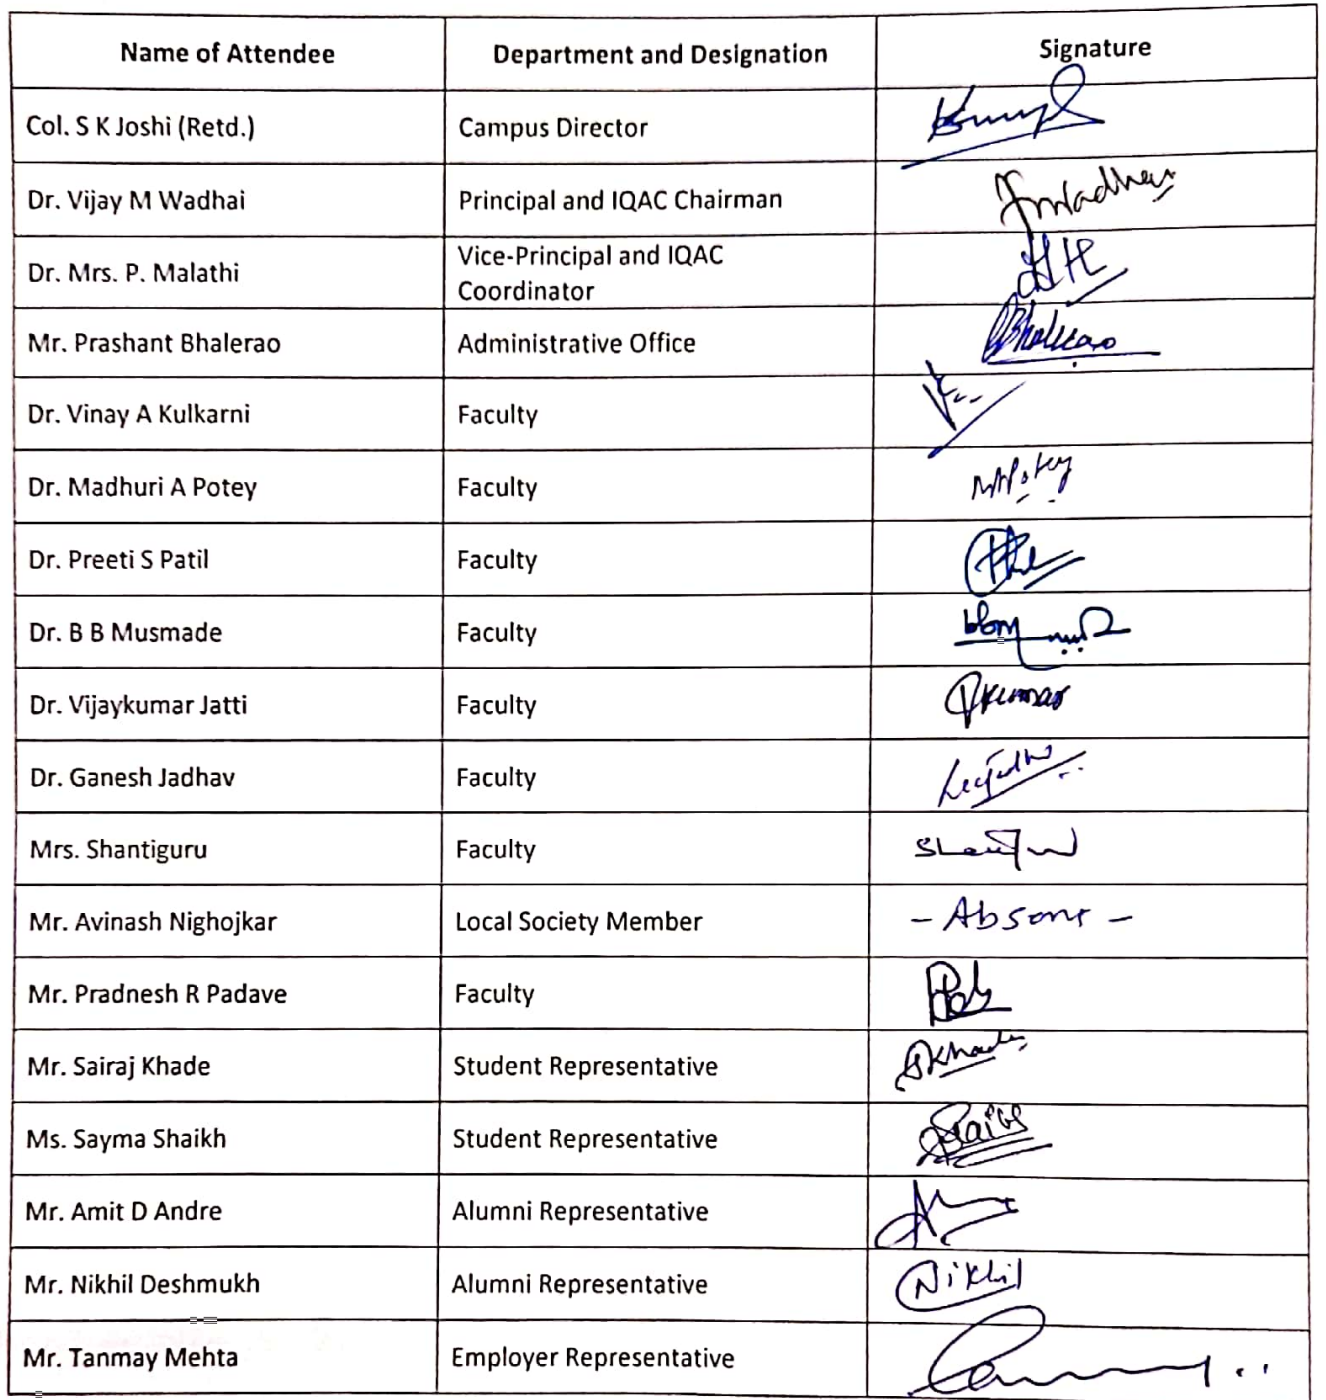 Name of Attendee Department and Designation Signature
Col. S K Joshi (Retd.) Campus Director
Dr. Vijay M Wadhai Principal and IQAC Chairman
Dr. Mrs. P. Malathi Vice-Principal and IQAC
Coordinator
Mr. Prashant Bhalerao Administrative Office Bhalerao
Dr. Vinay A Kulkarni Faculty
Dr. Madhuri A Potey Faculty MAPotey
Dr. Preeti S Patil Faculty
Dr. B B Musmade Faculty
Dr. Vijaykumar Jatti Faculty
Dr. Ganesh Jadhav Faculty
Mrs. Shantiguru Faculty
Mr. Avinash Nighojkar Local Society Member - Absent -
Mr. Pradnesh R Padave Faculty
Mr. Sairaj Khade Student Representative SKhade
Ms. Sayma Shaikh Student Representative
Mr. Amit D Andre Alumni Representative
Mr. Nikhil Deshmukh Alumni Representative Nikhil
Mr. Tanmay Mehta Employer Representative